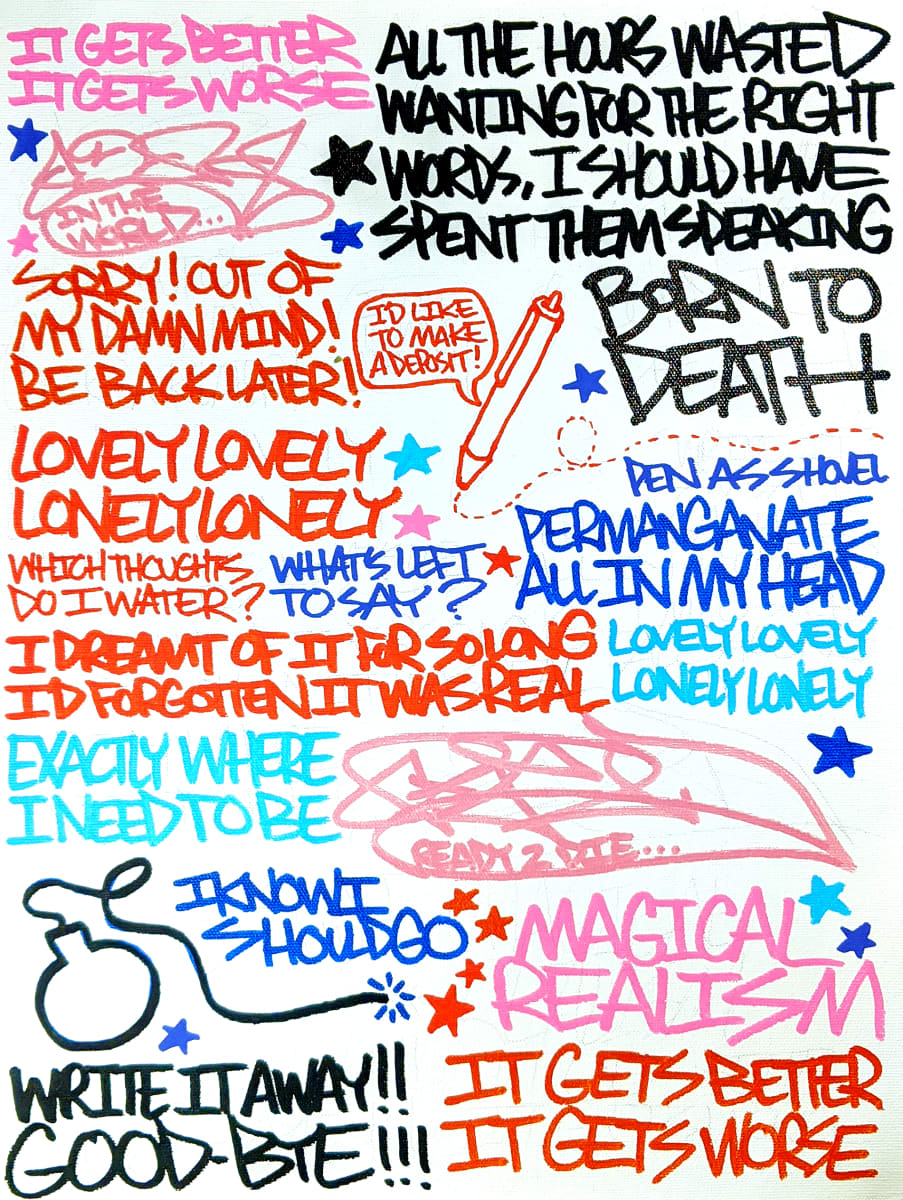 IT GETS BETTER
IT GETS WORSE
ALL THE HOURS WASTED
WANTING FOR THE RIGHT
WORDS, I SHOULD HAVE
SPENT THEM SPEAKING
IN THE
WORLD...
SORRY! OUT OF
MY DAMN MIND!
BE BACK LATER!
I'D LIKE
TO MAKE
A DEPOSIT!
BORN TO
DEATH
LOVELY LOVELY
LONELY LONELY
PEN AS SHOVEL
PERMANGANATE
ALL IN MY HEAD
WHICH THOUGHTS
DO I WATER?
WHAT'S LEFT
TO SAY?
I DREAMT OF IT FOR SO LONG
I'D FORGOTTEN IT WAS REAL
LOVELY LOVELY
LONELY LONELY
EXACTLY WHERE
I NEED TO BE
READY 2 DIE...
I KNOW I
SHOULD GO
MAGICAL
REALISM
WRITE IT AWAY!!
GOOD-BYE!!!
IT GETS BETTER
IT GETS WORSE